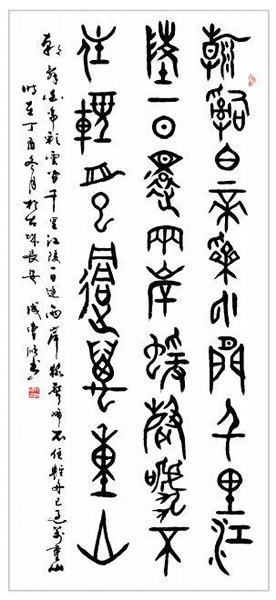 朝辭白帝彩云間千里江
陵一日還兩岸猿聲啼不
住輕舟已過萬重山
朝辞白帝彩雲间千里江陵一日还两岸猿聲啼不住輕舟已过萬重山
时在丁酉冬月於古城長安